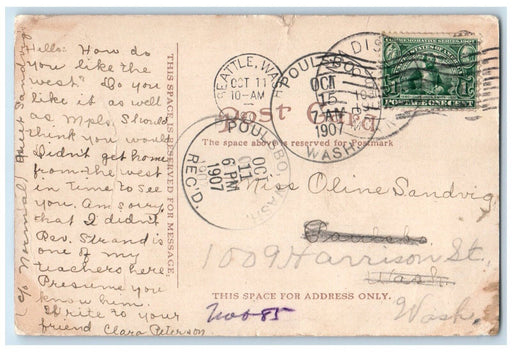 Hello: How do
you like the
west? Do you
like it as well
as Mpls. Should
think you would
Didn't get home
from the west
in time to see
you. Am sorry
that I didn't
Rev. Strand is
one of my
teachers here
Presume you
know him.
Write to your
friend Clara Peterson
THIS SPACE IS RESERVED FOR MESSAGE.
SEATTLE, WASH.
OCT 11
10-AM
POULSBO
OCT
15
7 AM
1907
WASH.
Post Card
The space above is reserved for Postmark
POULSBO, WASH.
OCT
11
6 PM
1907
REC'D.
COMMEMORATIVE SERIES 1907
1 1
ONE CENT
Miss Oline Sandvig
1009 Harrison St.
Wash.
Wash.
THIS SPACE FOR ADDRESS ONLY.